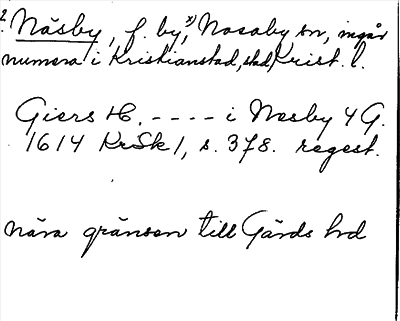 2. Näsby, f. by, x) Nosaby sn, ingår
numera i Kristianstad, stad, Krist. l.
Giers H. - - - - i Nesby 4 G.
1614 KrSk 1, s. 378. regest.
nära gränsen till Gärds hd